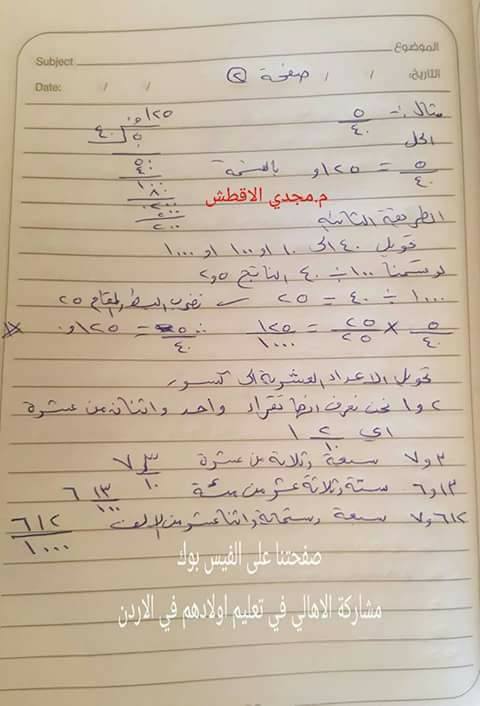 الموضوع:
Subject
التاريخ: / /
Date: / /
صفحة ②
مثال :- ٥/٤٠
١٢٥
٤٠
الحل
٥/٤٠ = ١٢٥و٠ بالقسمة
م.مجدي الاقطش
الطريقة الثانية
تحويل ٤٠ الى ١٠ او ١٠٠ او ١٠٠٠
لو قسمنا ١٠٠ ÷ ٤٠ الناتج ٥و٢
١٠٠٠ ÷ ٤٠ = ٢٥ نضرب البسط والمقام ٢٥
٥/٤٠ × ٢٥/٢٥ = ١٢٥/١٠٠٠ ٥/٤٠ = ١٢٥و٠
تحويل الاعداد العشرية الى كسور
٢و١ نحن نعرف انها تقرأ واحد واثنان من عشرة
اي ١ ٢/١٠
٣و٧ سبعة وثلاثة من عشرة ٧ ٣/١٠
١٣و٦ ستة وثلاثة عشر من مئة ٦ ١٣/١٠٠
٦١٢و٧ سبعة وستمائة واثنا عشر من الالف ٦١٢/١٠٠٠
صفحتنا على الفيس بوك
مشاركة الاهالي في تعليم اولادهم في الاردن